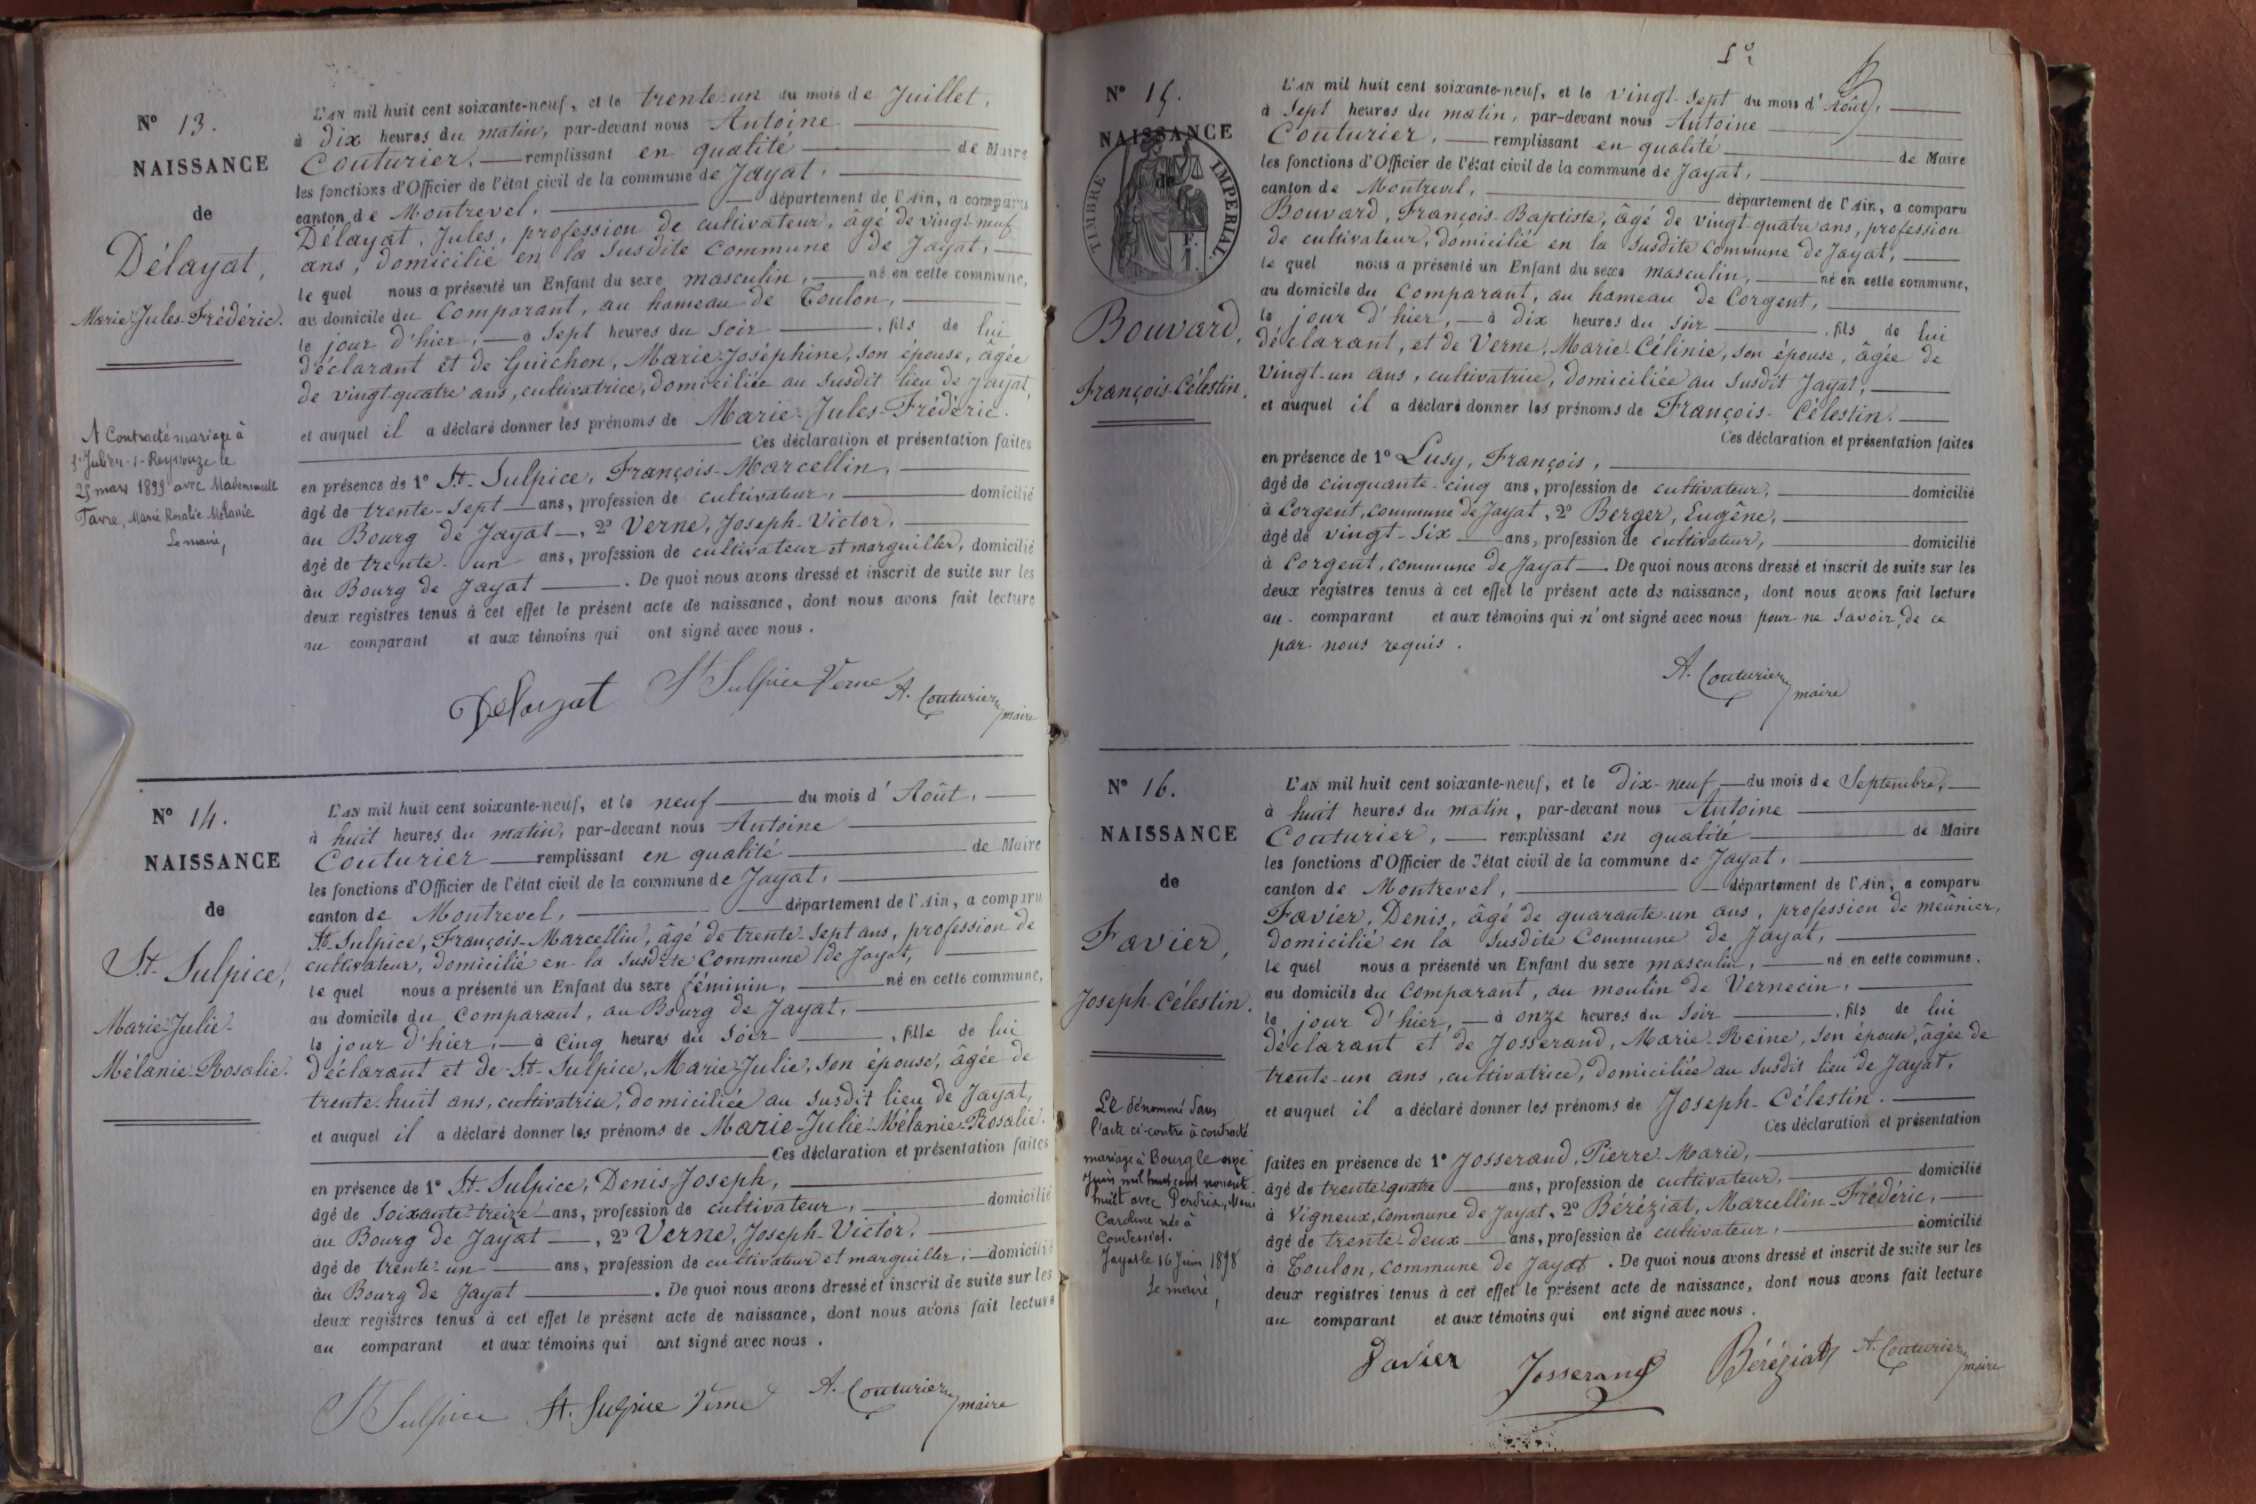 N° 13.
NAISSANCE
de
Délayat,
Marie-Jules-Frédéric.
A Contracté mariage à
St Julien-s-Reyssouze le
25 mars 1899 avec Mademoiselle
Favre, Marie Rosalie Mélanie
Le maire,
L'AN mil huit cent soixante-neuf, et le trente-un du mois de Juillet,
à dix heures du matin, par-devant nous Antoine
Couturier, remplissant en qualité de Maire
les fonctions d'Officier de l'état civil de la commune de Jayat,
canton de Montrevel, département de l'Ain, a comparu
Délayat, Jules, profession de cultivateur, âgé de vingt-neuf
ans, domicilié en la susdite Commune de Jayat,
le quel nous a présenté un Enfant du sexe masculin, né en cette commune,
au domicile du Comparant, au hameau de Toulon,
le jour d'hier, à Sept heures du Soir, fils de lui
déclarant et de Guichon, Marie-Joséphine, son épouse, âgée
de vingt-quatre ans, cultivatrice, domiciliée au susdit lieu de Jayat,
et auquel il a déclaré donner les prénoms de Marie-Jules-Frédéric.
Ces déclaration et présentation faites
en présence de 1° St-Sulpice, François-Marcellin,
âgé de trente-sept ans, profession de cultivateur, domicilié
au Bourg de Jayat, 2° Verne, Joseph-Victor,
âgé de trente-un ans, profession de cultivateur et marguiller, domicilié
au Bourg de Jayat. De quoi nous avons dressé et inscrit de suite sur les
deux registres tenus à cet effet le présent acte de naissance, dont nous avons fait lecture
au comparant et aux témoins qui ont signé avec nous.
Delayat St Sulpice Verne A. Couturier maire
N° 14.
NAISSANCE
de
St-Sulpice,
Marie-Julie-
Mélanie-Rosalie.
L'AN mil huit cent soixante-neuf, et le neuf du mois d'Août,
à huit heures du matin, par-devant nous Antoine
Couturier remplissant en qualité de Maire
les fonctions d'Officier de l'état civil de la commune de Jayat,
canton de Montrevel, département de l'Ain, a comparu
St-Sulpice, François-Marcellin, âgé de trente-sept ans, profession de
cultivateur, domicilié en la susdite Commune de Jayat,
le quel nous a présenté un Enfant du sexe féminin, né en cette commune,
au domicile du Comparant, au Bourg de Jayat,
le jour d'hier, à Cinq heures du Soir, fille de lui
déclarant et de St-Sulpice, Marie-Julie, son épouse, âgée de
trente-huit ans, cultivatrice, domiciliée au susdit lieu de Jayat,
et auquel il a déclaré donner les prénoms de Marie-Julie-Mélanie-Rosalie.
Ces déclaration et présentation faites
en présence de 1° St-Sulpice, Denis-Joseph,
âgé de Soixante-treize ans, profession de cultivateur, domicilié
au Bourg de Jayat, 2° Verne, Joseph-Victor,
âgé de trente-un ans, profession de cultivateur et marguiller, domicilié
au Bourg de Jayat. De quoi nous avons dressé et inscrit de suite sur les
deux registres tenus à cet effet le présent acte de naissance, dont nous avons fait lecture
au comparant et aux témoins qui ont signé avec nous.
St Sulpice St. Sulpice Verne A. Couturier maire
N° 15.
NAISSANCE
de
TIMBRE IMPERIAL
Bouvard,
François-Célestin.
L'AN mil huit cent soixante-neuf, et le vingt-sept du mois d'Août,
à Sept heures du matin, par-devant nous Antoine
Couturier, remplissant en qualité de Maire
les fonctions d'Officier de l'état civil de la commune de Jayat,
canton de Montrevel, département de l'Ain, a comparu
Bouvard, François-Baptiste, âgé de vingt-quatre ans, profession
de cultivateur, domicilié en la susdite commune de Jayat,
le quel nous a présenté un Enfant du sexe masculin, né en cette commune,
au domicile du Comparant, au hameau de Corgent,
le jour d'hier, à dix heures du soir, fils de lui
déclarant, et de Verne, Marie-Célinie, son épouse, âgée de
vingt-un ans, cultivatrice, domiciliée au susdit Jayat,
et auquel il a déclaré donner les prénoms de François-Célestin.
Ces déclaration et présentation faites
en présence de 1° Lusy, François,
âgé de cinquante-cinq ans, profession de cultivateur, domicilié
à Corgent, commune de Jayat, 2° Berger, Eugène,
âgé de vingt-six ans, profession de cultivateur, domicilié
à Corgent, commune de Jayat. De quoi nous avons dressé et inscrit de suite sur les
deux registres tenus à cet effet le présent acte de naissance, dont nous avons fait lecture
au comparant et aux témoins qui n'ont signé avec nous pour ne savoir, de ce
par nous requis.
A. Couturier maire
N° 16.
NAISSANCE
de
Favier,
Joseph-Célestin.
Le dénommé dans
l'acte ci-contre à contracté
mariage à Bourg le onze
Juin mil huit cent nonante
huit avec Perdrix, Marie
Caroline née à
Confesniol.
Jayat le 16 Juin 1898
Le maire,
L'AN mil huit cent soixante-neuf, et le Dix-neuf du mois de Septembre,
à huit heures du matin, par-devant nous Antoine
Couturier, remplissant en qualité de Maire
les fonctions d'Officier de l'état civil de la commune de Jayat,
canton de Montrevel, département de l'Ain, a comparu
Favier, Denis, âgé de quarante-un ans, profession de meûnier,
domicilié en la susdite Commune de Jayat,
le quel nous a présenté un Enfant du sexe masculin, né en cette commune.
au domicile du Comparant, au moulin de Vernecin,
le jour d'hier, à onze heures du Soir, fils de lui
déclarant et de Josserand, Marie-Reine, son épouse, âgée de
trente-un ans, cultivatrice, domiciliée au susdit lieu de Jayat,
et auquel il a déclaré donner les prénoms de Joseph-Célestin.
Ces déclaration et présentation
faites en présence de 1° Josserand, Pierre-Marie,
âgé de trente-quatre ans, profession de cultivateur, domicilié
à Vigneux, commune de Jayat, 2° Béréziat, Marcellin-Frédéric,
âgé de trente-deux ans, profession de cultivateur, domicilié
à Toulon, commune de Jayat. De quoi nous avons dressé et inscrit de suite sur les
deux registres tenus à cet effet le présent acte de naissance, dont nous avons fait lecture
au comparant et aux témoins qui ont signé avec nous.
Favier Josserand Béréziat A. Couturier maire